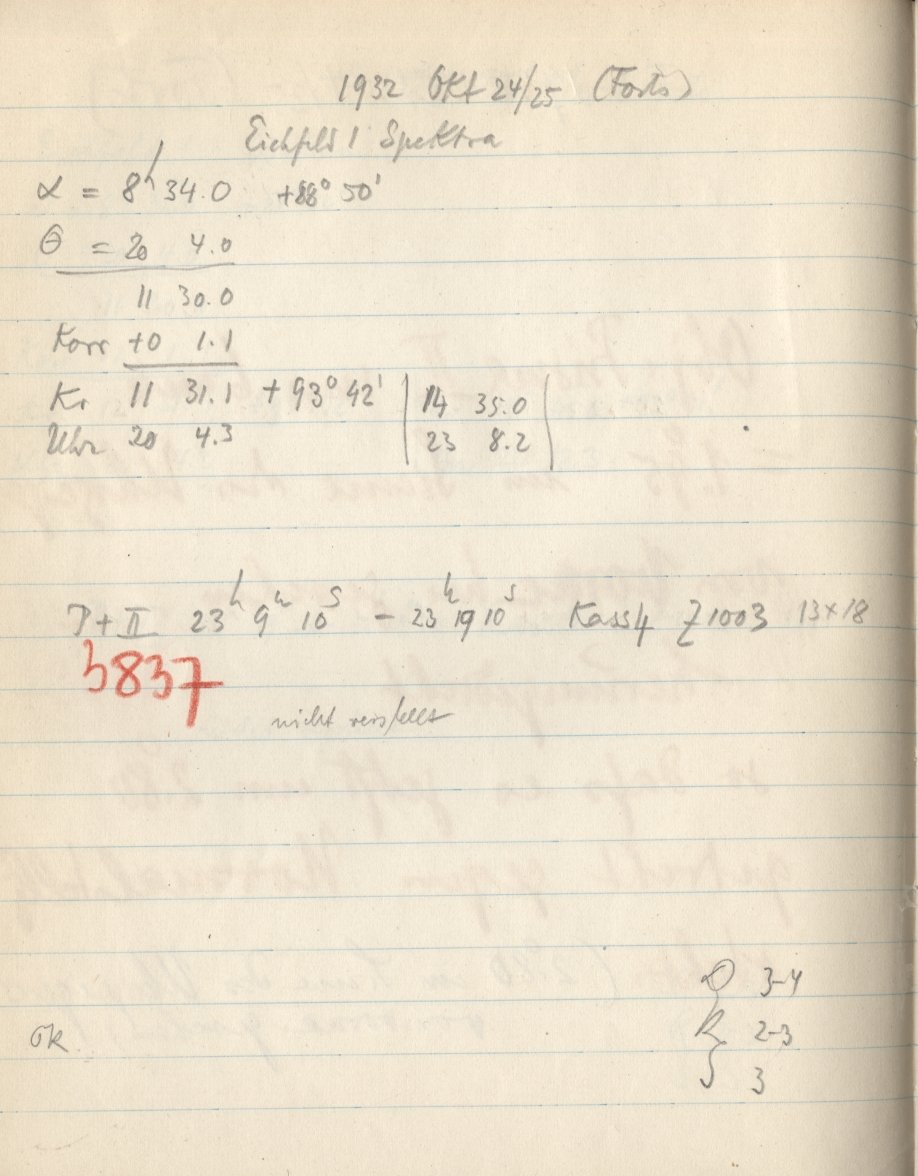 1932 Okt 24/25 (Forts)
Eichfeld 1 Spektra
α = 8h 34.0 +88° 50'
Θ = 20 4.0
11 30.0
Korr +0 1.1
Kr 11 31.1 + 93° 42' | 14 35.0 |
Uhr 20 4.3 | 23 8.2 |
P+II 23h 9m 10s – 23h 19 10s Kass 4 Z 1003 13×18
3837
nicht verstellt
3-4
OK
R 2-3
3